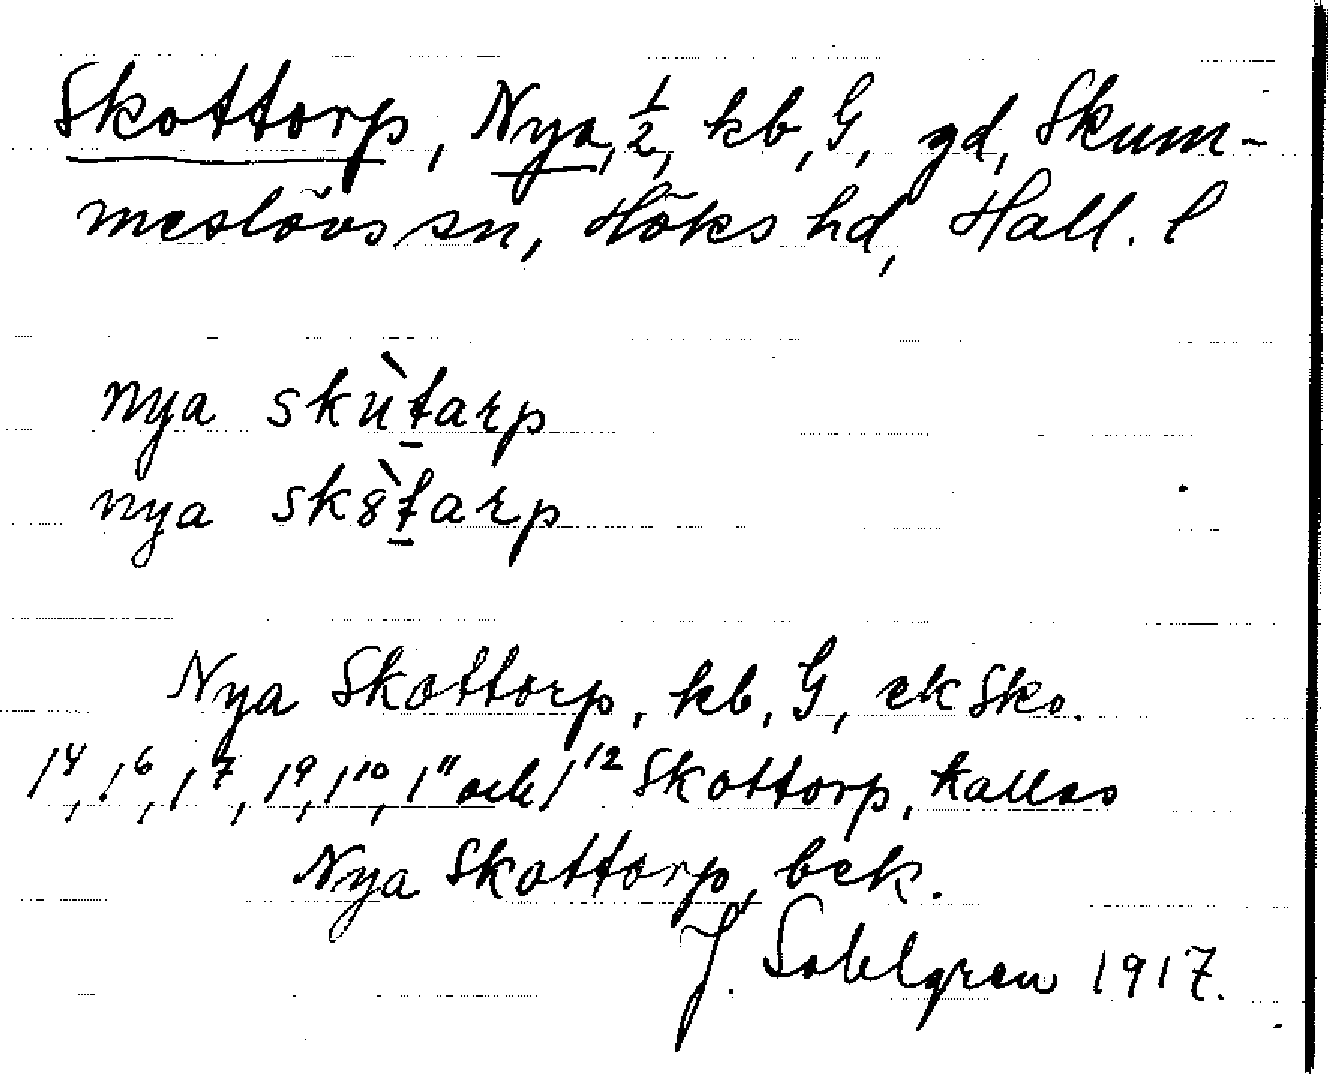 Skottorp, Nya, 1/2, kb, G, gd, Skum-
meslövs sn, Höks hd, Hall. l
nya skùtarp
nya sk8̀tarp
Nya Skottorp, kb, G, ek Sko.
1⁴, 1⁶, 1⁷, 1⁹, 1¹⁰, 1¹¹ och 1¹² Skottorp, kallas
Nya Skottorp, bek.
J. Sahlgren 1917.